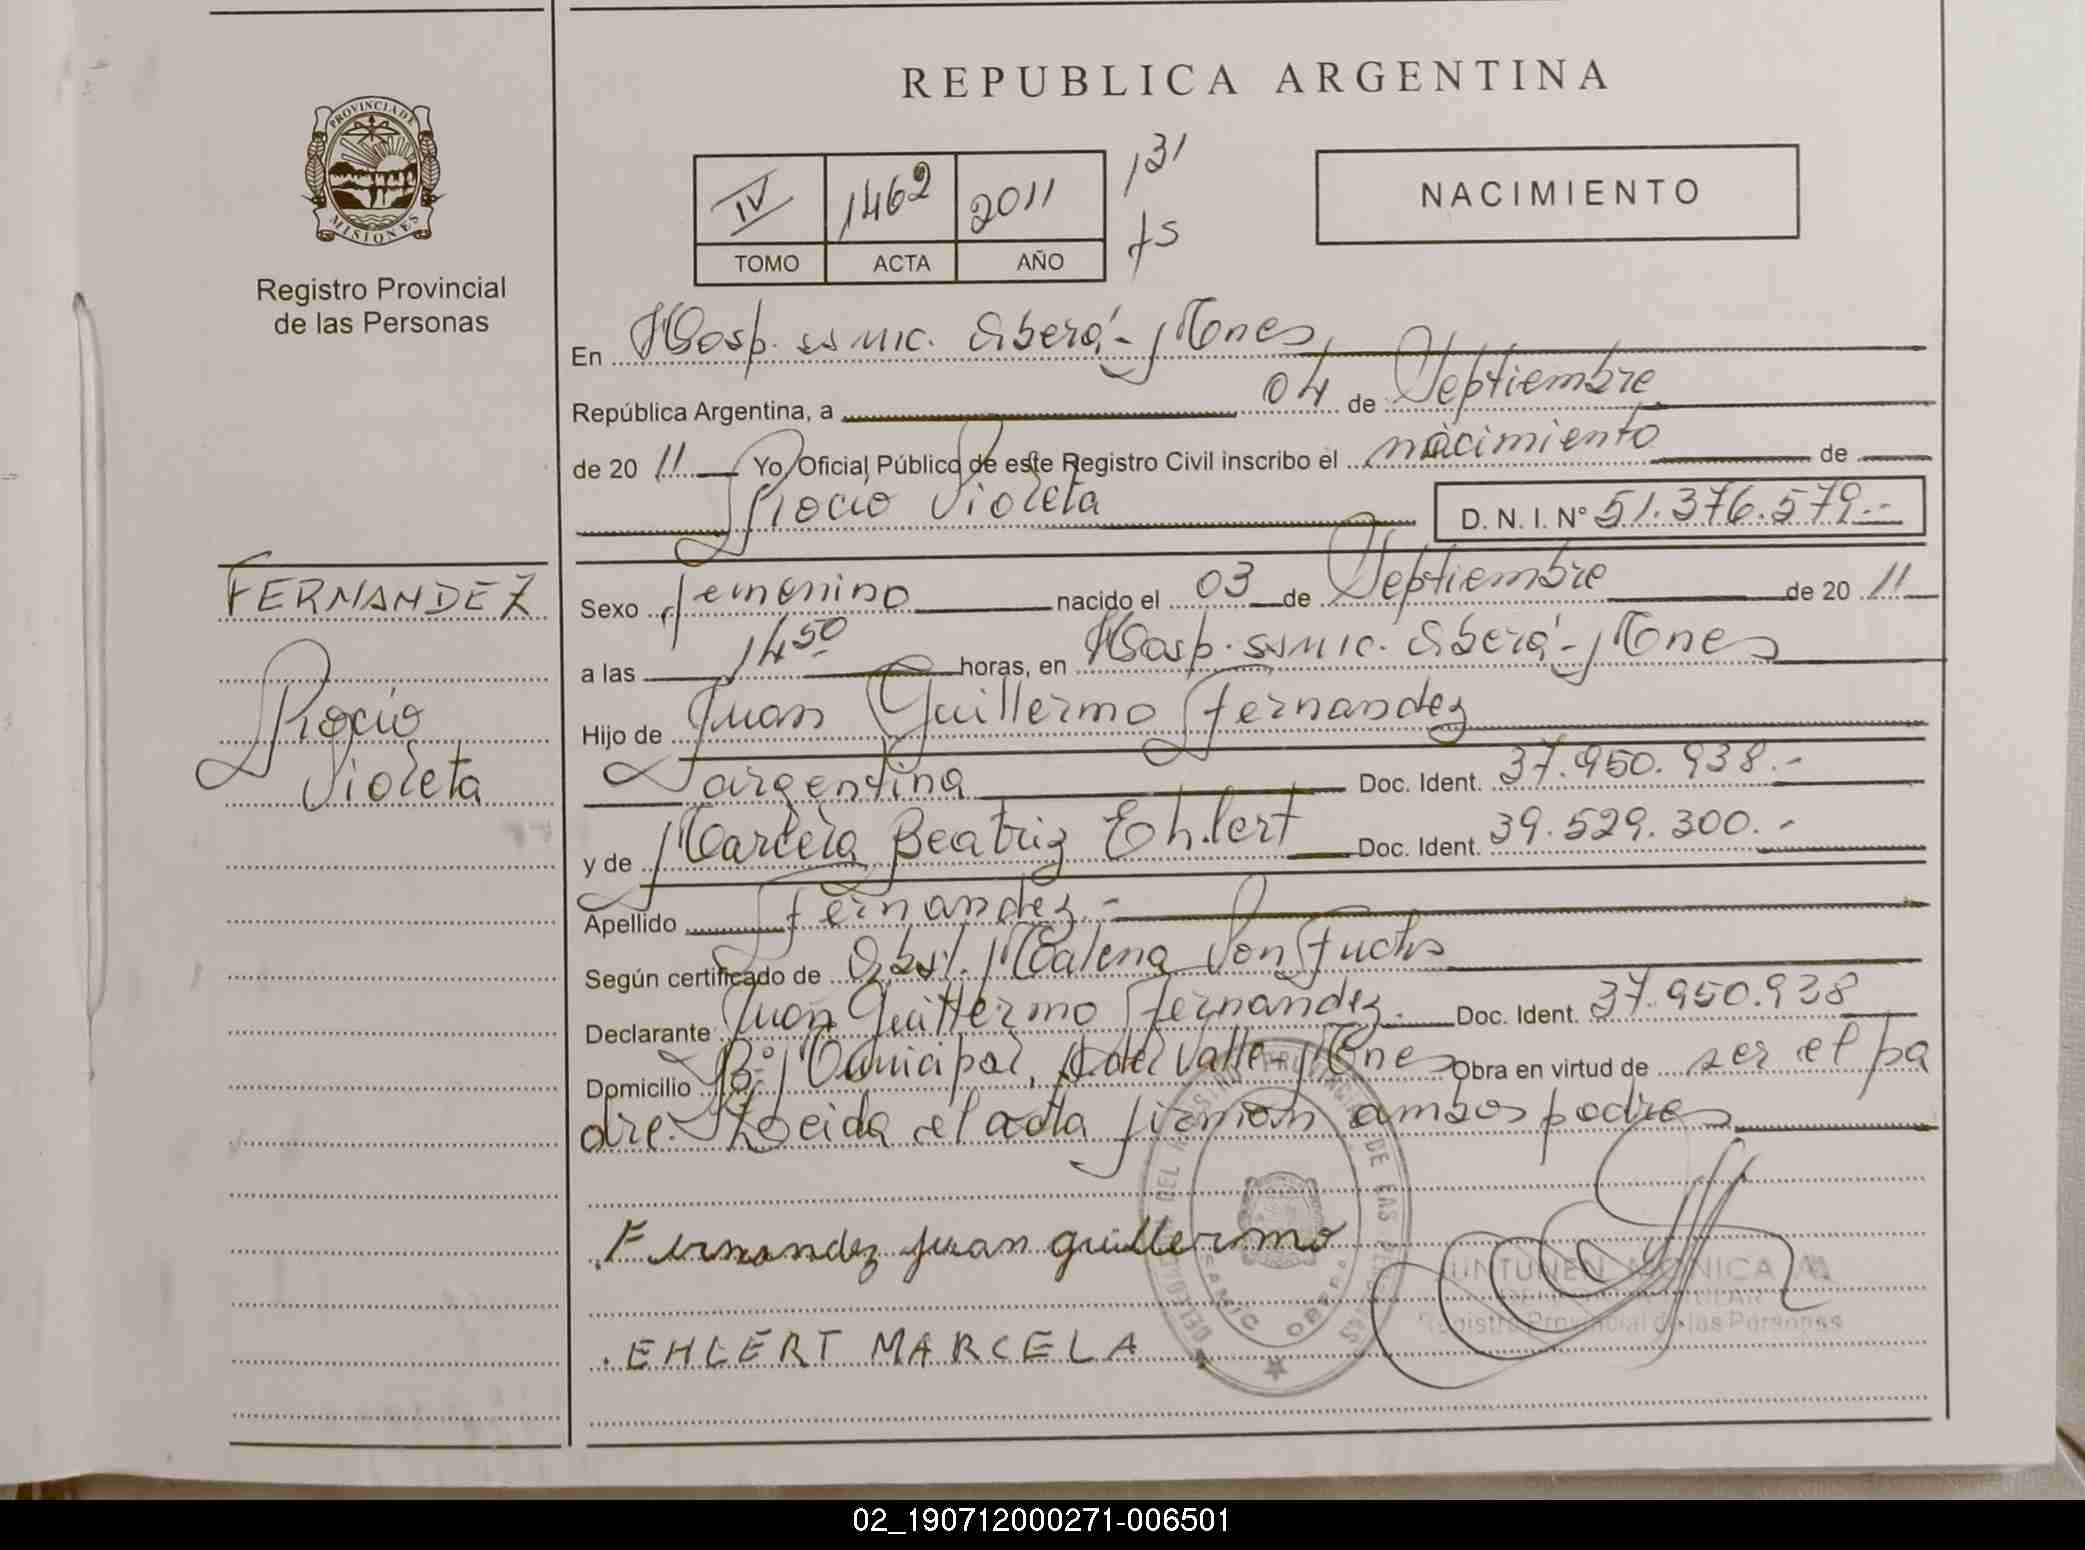 REPUBLICA ARGENTINA
PROVINCIA DE
MISIONES
Registro Provincial
de las Personas
IV 1462 2011
TOMO ACTA AÑO
131
fs
NACIMIENTO
En Hosp. ssmic. Oberá - Mones
República Argentina, a 04 de Septiembre
de 2011 Yo Oficial Público de este Registro Civil inscribo el nacimiento de
Rocio Violeta D. N. I. N° 51.376.579.-
FERNANDEZ
Rocio
Violeta
Sexo femenino nacido el 03 de Septiembre de 2011
a las 14 50 horas, en Hosp. ssmic. Oberá - Mones
Hijo de Juan Guillermo Fernandez
argentina Doc. Ident. 37.950.938.-
y de Marcela Beatriz Ehlert Doc. Ident. 39.529.300.-
Apellido Fernandez.-
Según certificado de Obst. Malena Von Fuchs
Declarante Juan Guillermo Fernandez. Doc. Ident. 37.950.938
Domicilio B° Municipal, A del Valle - Mones Obra en virtud de ser el pa
dre. Leida el acta firman ambos padres
Fernandez juan guillermo
UNTUNEN MONICA M
Registro Provincial de las Personas
EHLERT MARCELA
02_190712000271-006501